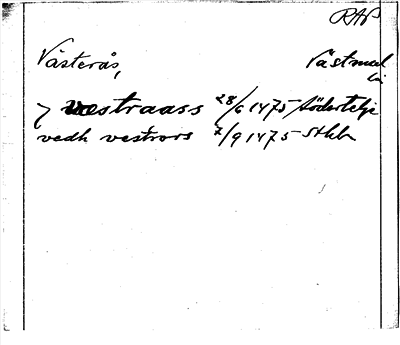 RAP
Västerås,
Västmal
län
j vestraass 28/6 1475 Södertelje
vedh vestrors 7/9 1475 Sthlm